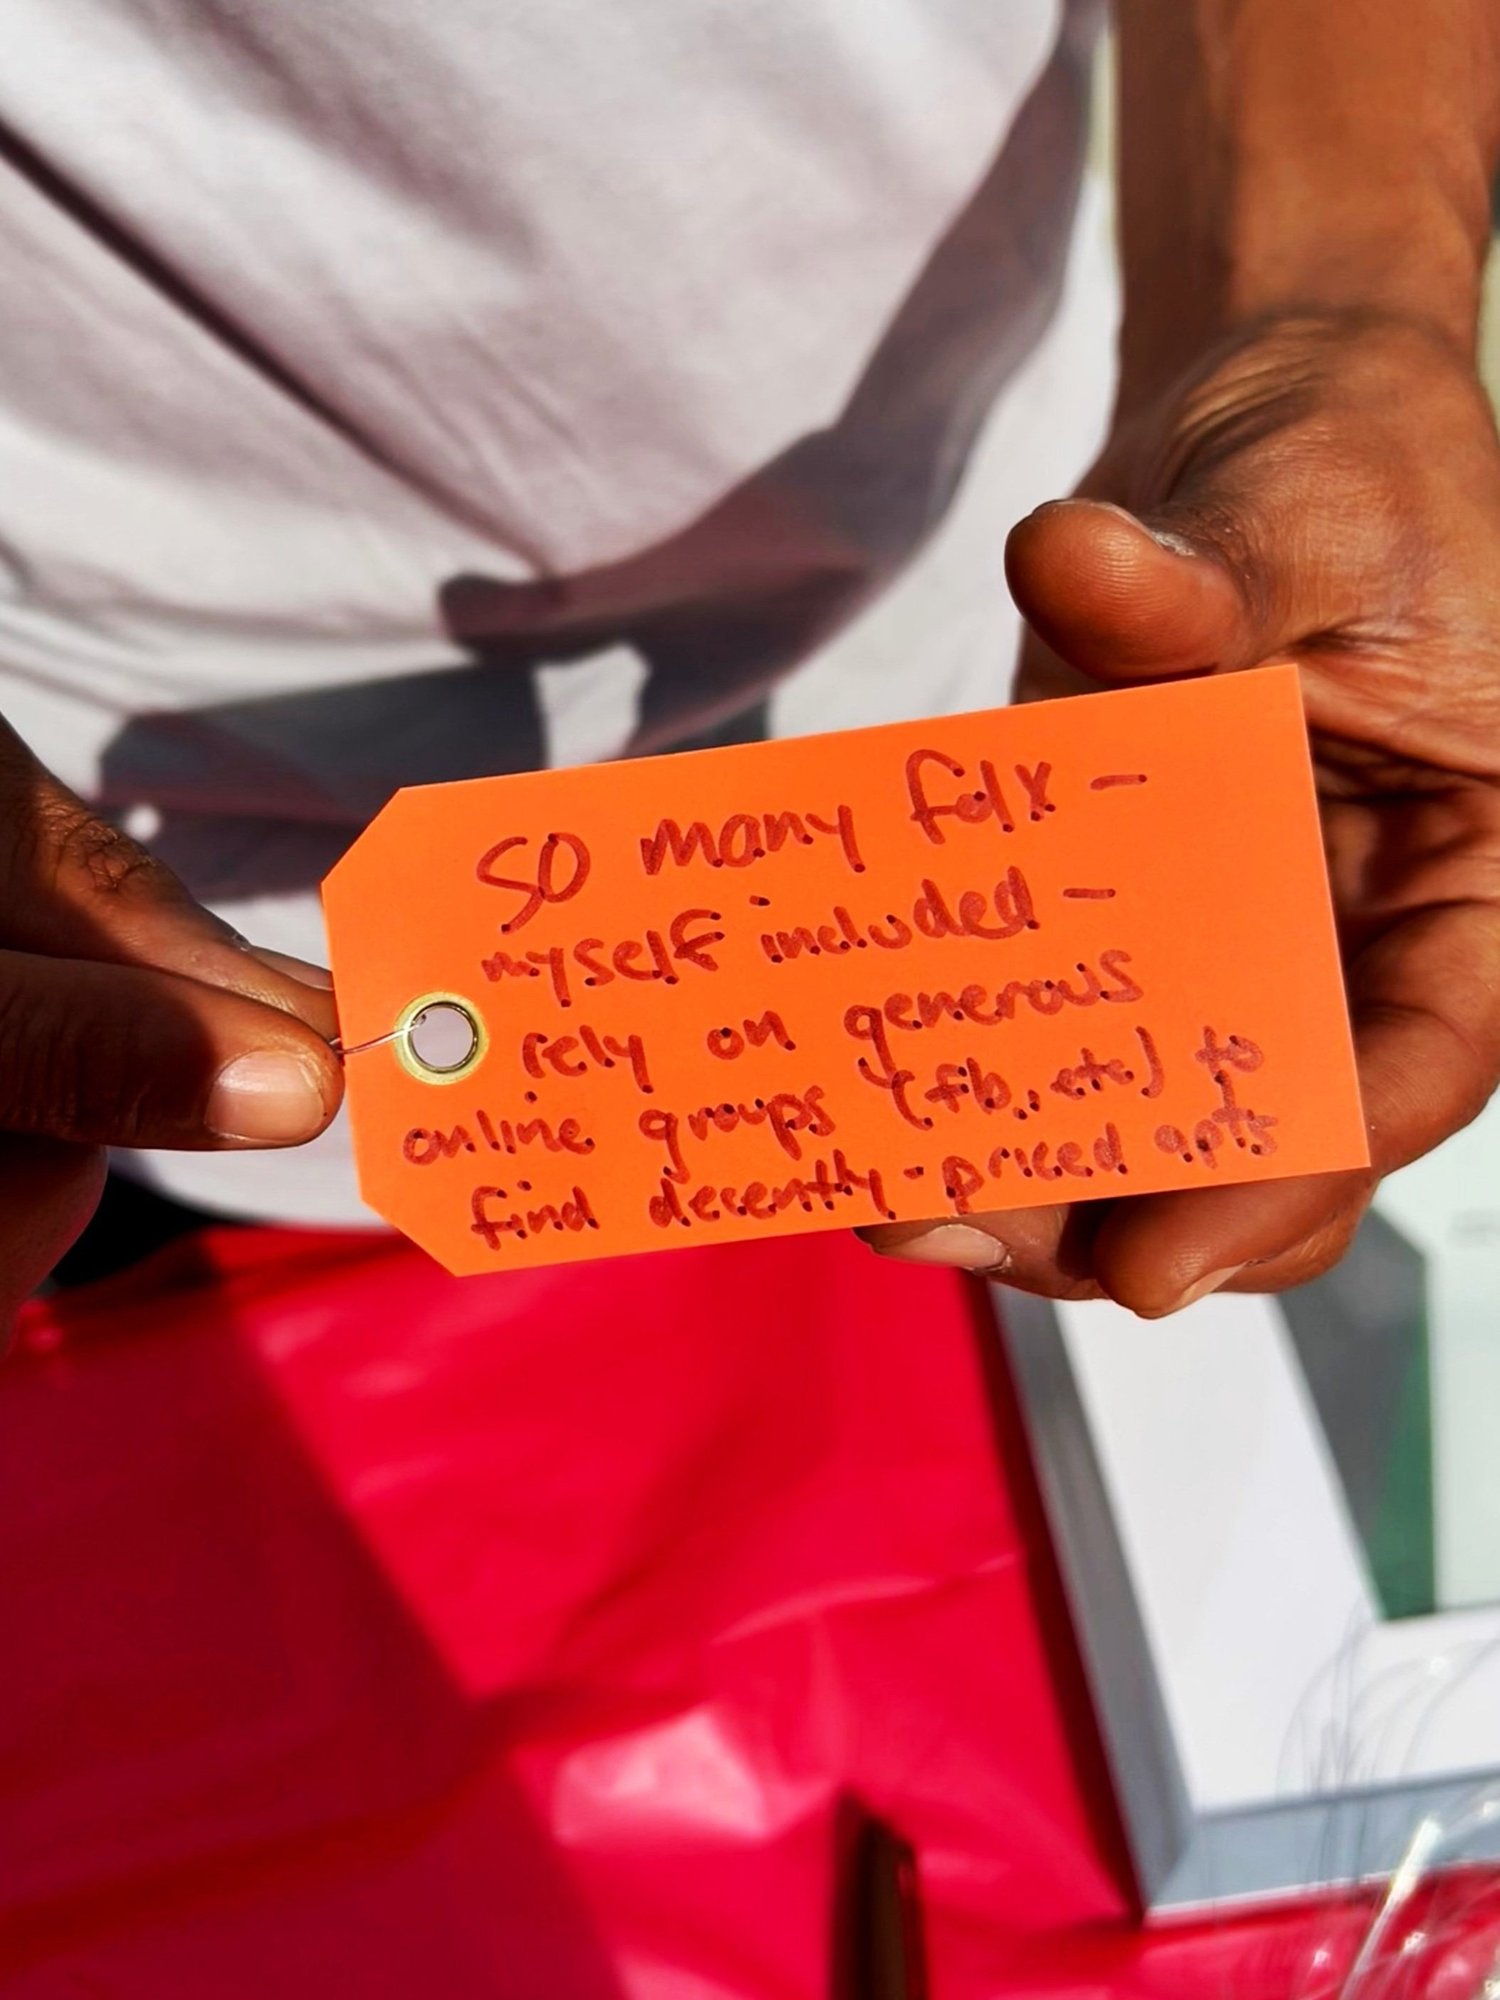 SO many folx -
myself included -
rely on generous
online groups (fb, etc) to
find decently-priced apts